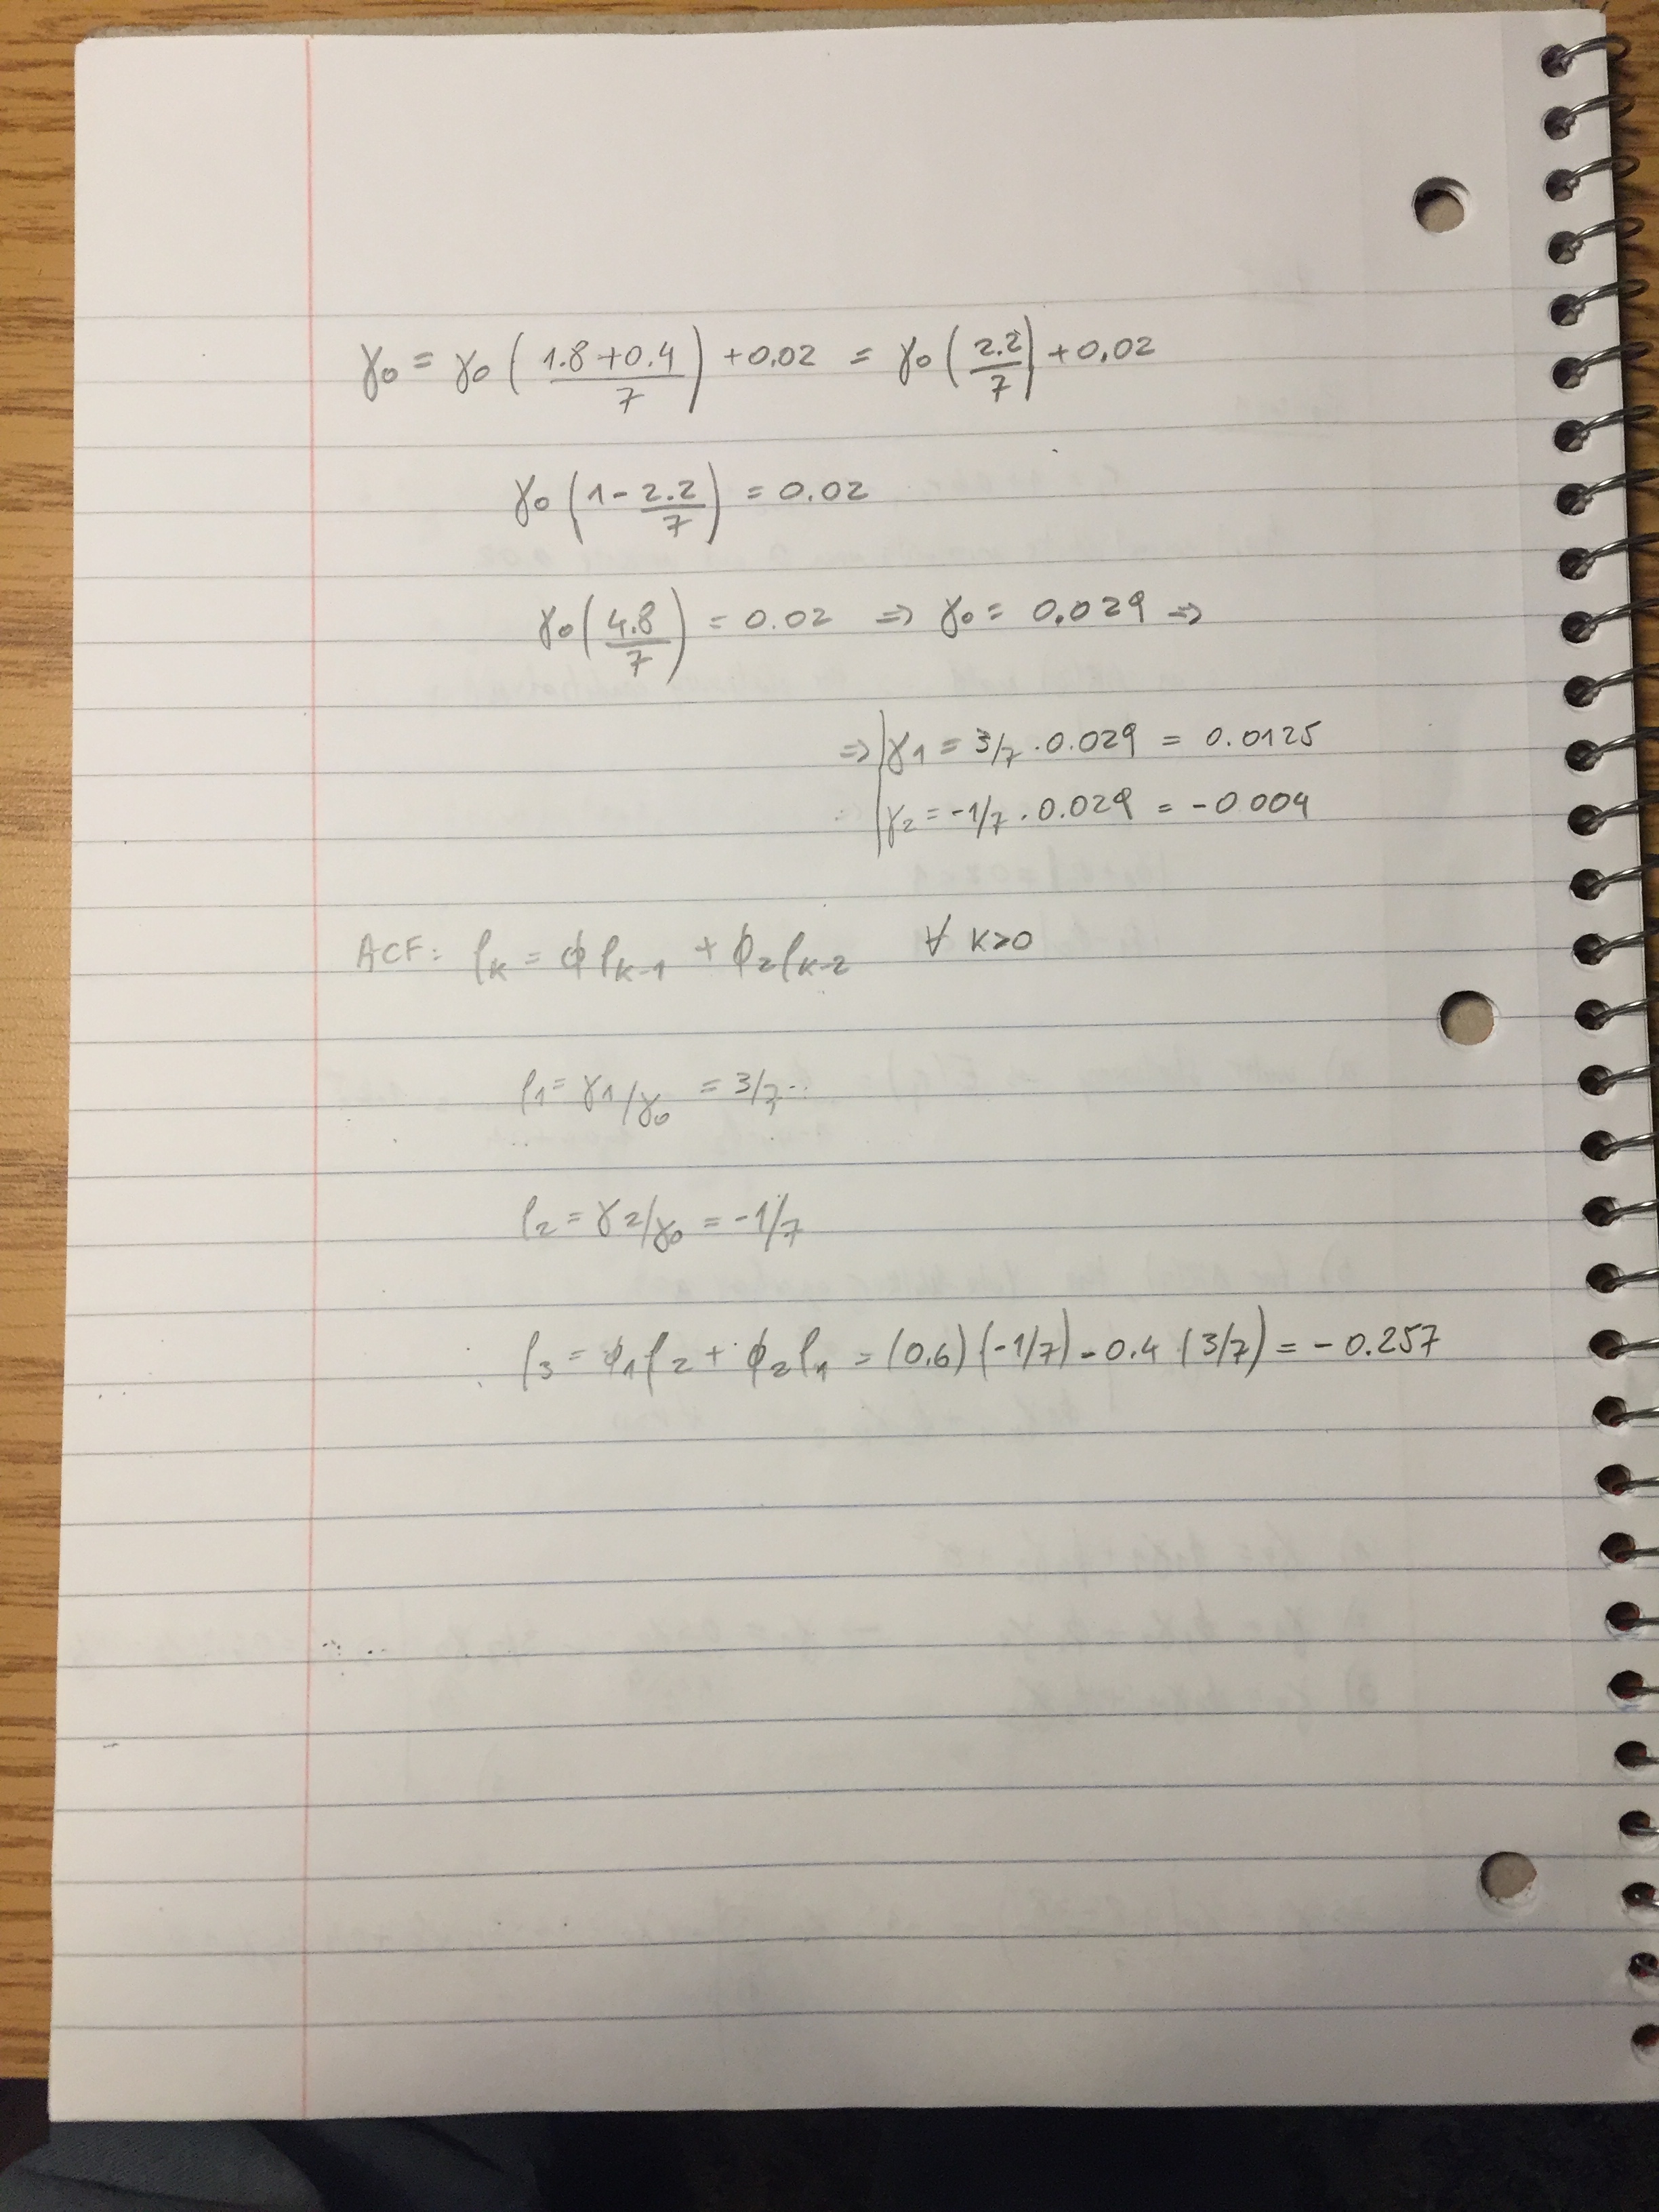 γ0 = γ0 ( (1.8+0.4)/7 ) + 0.02 = γ0 ( 2.2/7 ) + 0.02
γ0 ( 1 - 2.2/7 ) = 0.02
γ0 ( 4.8/7 ) = 0.02 ⇒ γ0 = 0.029 ⇒
⇒ | γ1 = 3/7 · 0.029 = 0.0125
| γ2 = -1/7 · 0.029 = -0.004
ACF: ρk = ϕ ρk-1 + ϕ2 ρk-2 ∀ k>0
ρ1 = γ1/γ0 = 3/7
ρ2 = γ2/γ0 = -1/7
ρ3 = ϕ1ρ2 + ϕ2ρ1 = (0.6)(-1/7) - 0.4 (3/7) = -0.257